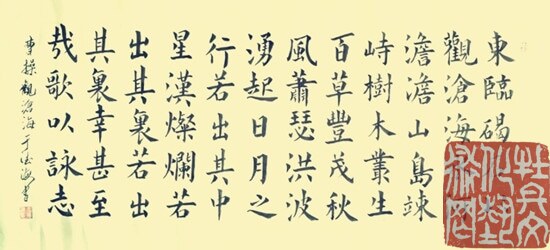 東臨碣
觀滄海
澹澹山島竦
峙樹木叢生
百草豐茂秋
風蕭瑟洪波
湧起日月之
行若出其中
星漢燦爛若
出其裏若出
其裏幸甚至
哉歌以詠志
曹操觀滄海